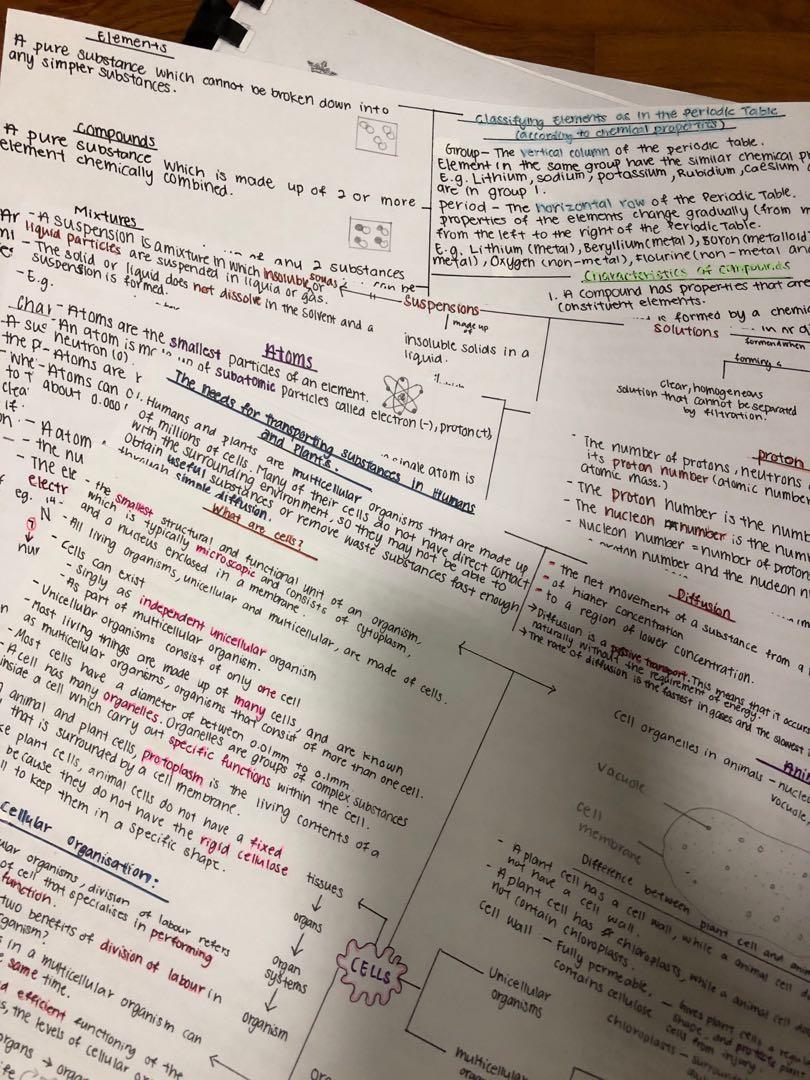 Elements
A pure substance which cannot be broken down into
any simpler substances.
Compounds
A pure substance which is made up of 2 or more
element chemically combined.
Mixtures
any 2 substances
can be
- A suspension is a mixture in which insoluble
liquid particles are suspended in liquid or gas.
- The solid or liquid does not dissolve in the solvent and a
suspension is formed.
- E.g.
Classifying Elements as in the Periodic Table
(according to chemical properties)
Group - The vertical column of the periodic table.
Element in the same group have the similar chemical
E.g. Lithium, sodium, potassium, Rubidium, Caesium
are in group 1.
period - The horizontal row of the Periodic Table.
properties of the elements change gradually (from
from the left to the right of the Periodic Table.
E.g. Lithium (metal), Beryllium (metal), Boron (metalloid
metal), Oxygen (non-metal), Flourine (non-metal and
Characteristics of compounds
1. A compound has properties that are
constituent elements.
is formed by a
suspensions
made up
insoluble solids in a
liquid.
solutions
formed when
forming a
clear, homogeneous
solution that cannot be separated
by filtration.
Atoms
- Atoms are the smallest particles of an element.
- An atom is of subatomic particles called electron (-), proton (+),
neutron (0).
- Atoms are
- Atoms can
about 0.000
single atom is
- A atom
- the nu
- The ele
electr
eg. 14
7 N
The needs for transporting substances in Humans
and Plants.
Humans and plants are multicellular organisms that are made up
of millions of cells. Many of their cells do not have direct contact
with the surrounding environment, so they may not be able to
obtain useful substances or remove waste substances fast enough
through simple diffusion.
What are cells?
- the smallest structural and functional unit of an organism,
which is typically microscopic and consists of cytoplasm,
and a nucleus enclosed in a membrane.
- All living organisms, unicellular and multicellular, are made of cells.
- Cells can exist
- singly as independent unicellular organism
- As part of multicellular organism.
- Unicellular organisms consist of only one cell
- Most living things are made up of many cells, and are known
as multicellular organisms, organisms that consist of more than one cell.
- Most cells have a diameter of between 0.01mm to 0.1mm.
- A cell has many organelles. Organelles are groups of complex substances
inside a cell which carry out specific functions within the cell.
animal and plant cells, protoplasm is the living contents of a
that is surrounded by a cell membrane.
plant cells, animal cells do not have a fixed
because they do not have the rigid cellulose
to keep them in a specific shape.
Cellular organisation:
organisms, division of labour refers
of cell that specialises in performing
function.
two benefits of division of labour in
organism?
in a multicellular organism can
same time.
efficient functioning of the
the levels of cellular
organs →
tissues
↓
organs
↓
organ
systems
↓
organism
CELLS
Unicellular
organisms
multicellular
proton
- The number of protons, neutrons
its proton number (atomic number
atomic mass.)
- The proton number is the num
- The nucleon number is the num
- Nucleon number = number of proton
number and the nucleon
Diffusion
- the net movement of a substance from a
- of higher concentration
- to a region of lower concentration.
→ Diffusion is a passive transport. This means that it occurs
naturally without the requirement of energy.
→ The rate of diffusion is the fastest in gases and the slowest
Cell organelles in animals -
vacuole,
vacuole
cell
membrane
Difference between plant cell and
- A plant cell has a cell wall, while a animal cell
not have a cell wall.
- A plant cell has chloroplasts, while a animal cell
not contain chloroplasts.
cell wall - Fully permeable,
contains cellulose
- Gives plant cells a
shape, and protects
cells from injury
chloroplasts -